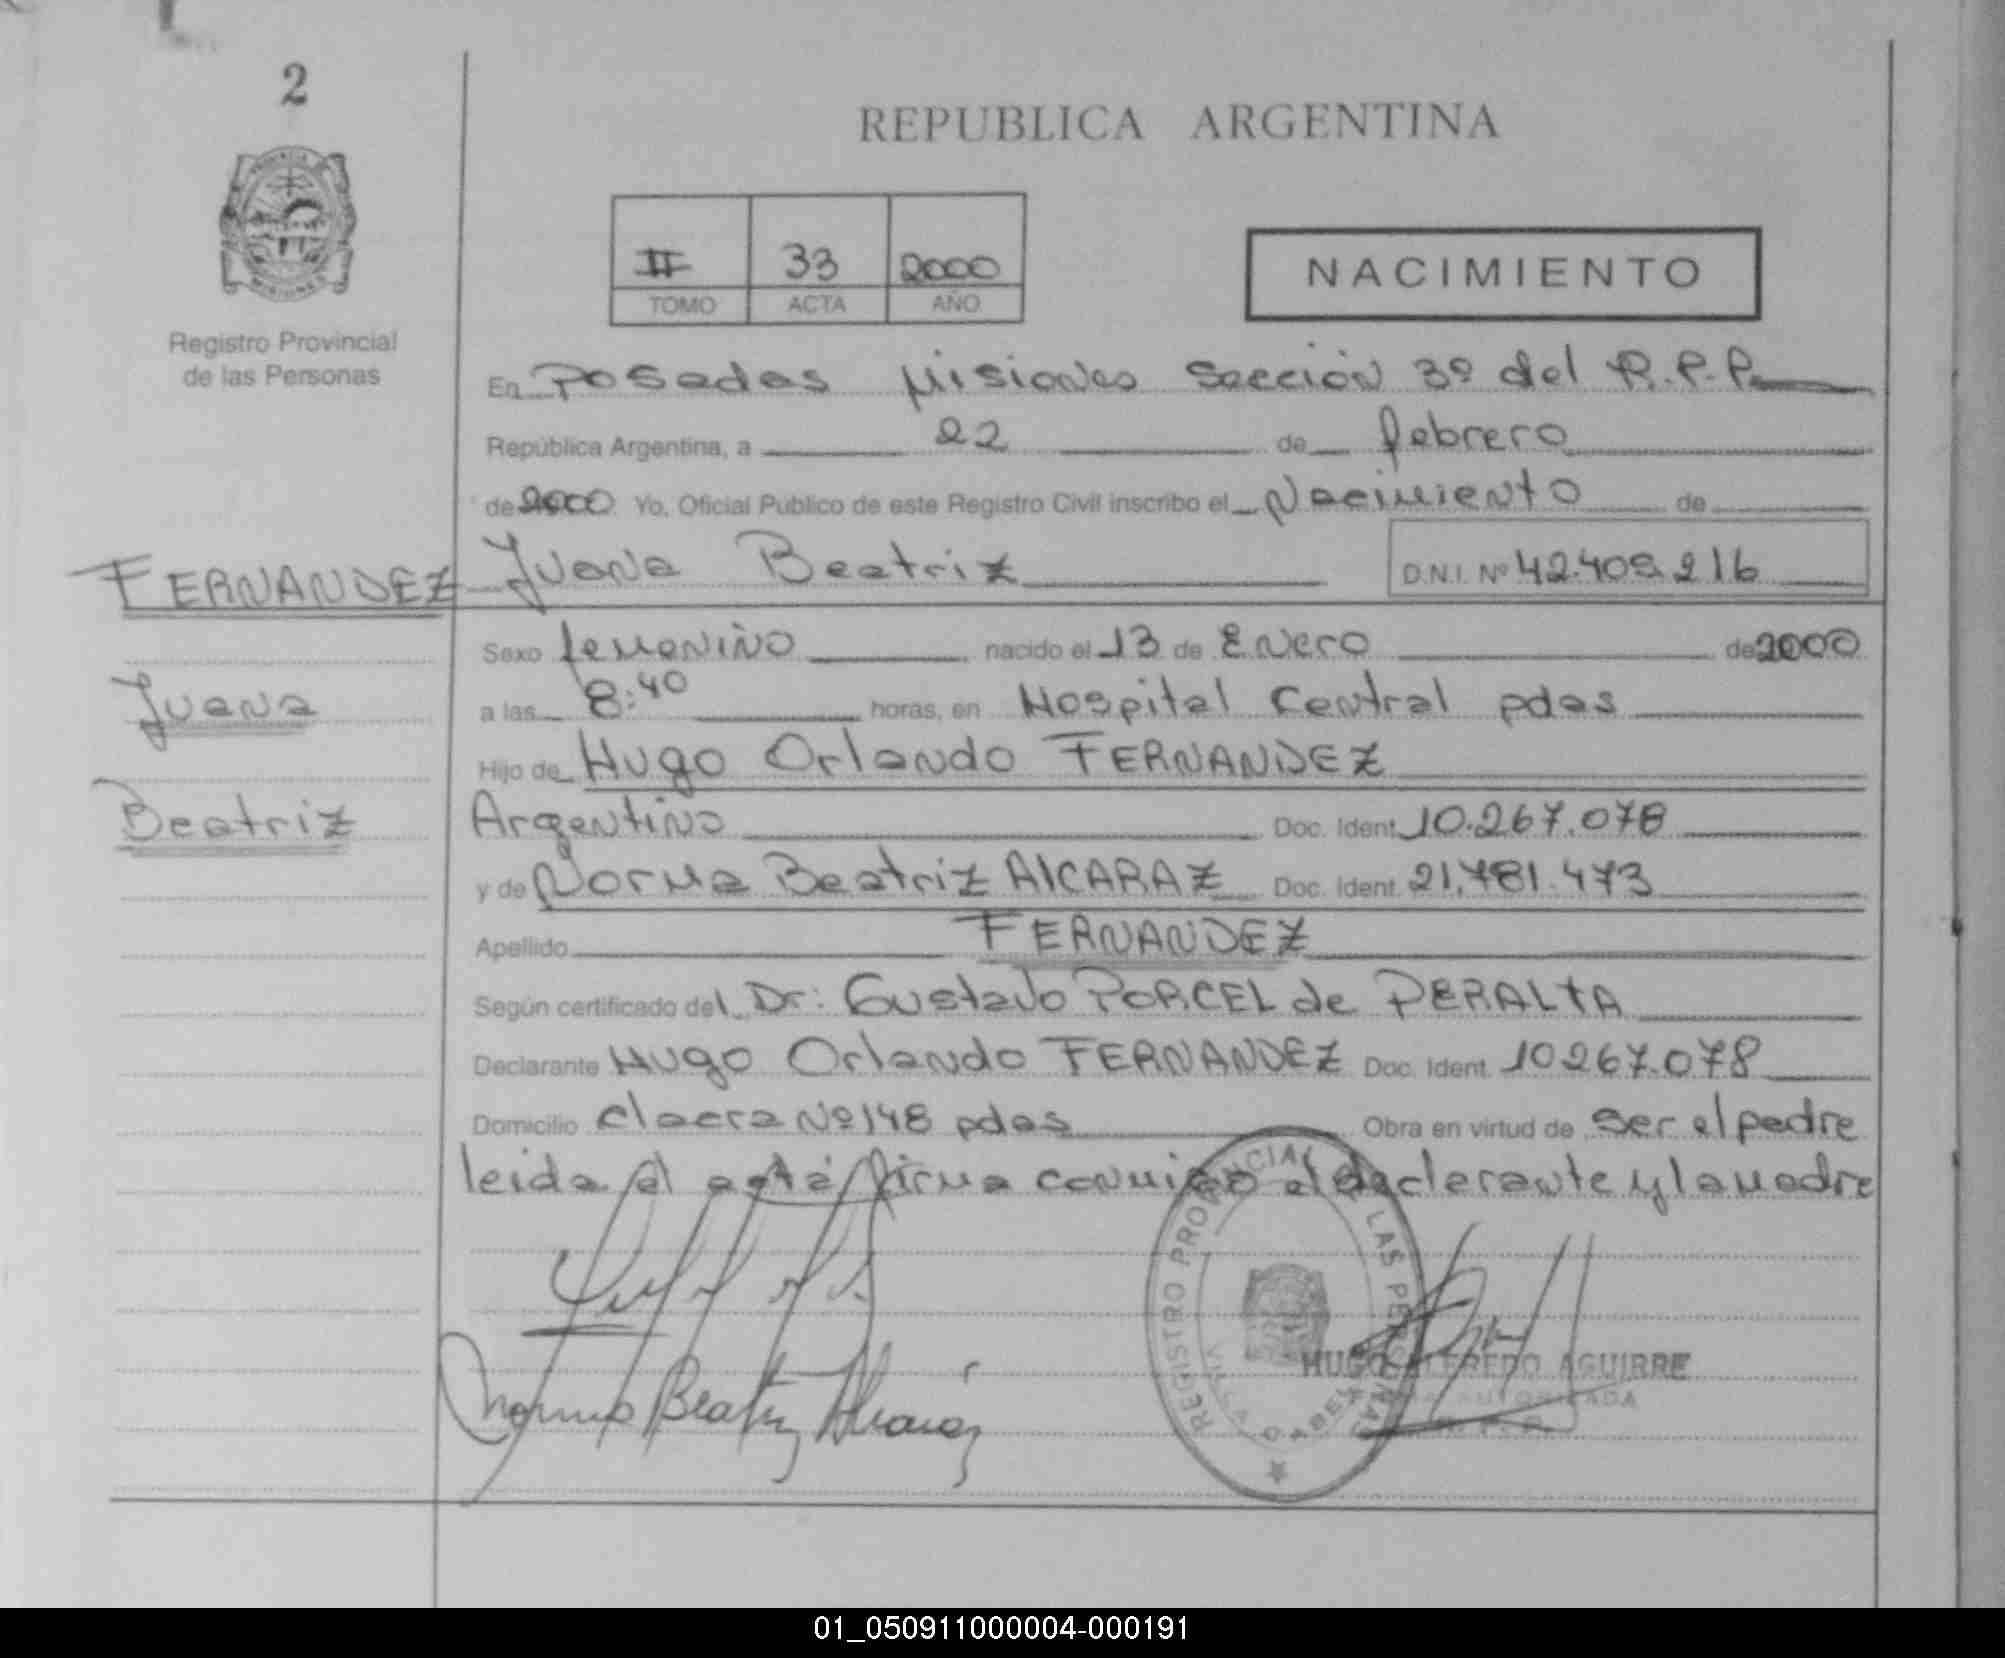 2
REPUBLICA ARGENTINA
II 33 2000
TOMO ACTA AÑO
NACIMIENTO
Registro Provincial
de las Personas
En Posadas Misiones Sección 3º del R.P.P.
República Argentina, a 22 de febrero
de 2000 Yo, Oficial Publico de este Registro Civil inscribo el Nacimiento de
FERNANDEZ Juana Beatriz D.N.I. Nº 42.409.216
Sexo femenino nacido el 13 de Enero de 2000
Juana
a las 8:40 horas, en Hospital Central pdas
Hijo de Hugo Orlando FERNANDEZ
Beatriz
Argentino Doc. Ident. 10.267.078
y de Norma Beatriz AlCARAZ Doc. Ident. 21.781.473
Apellido FERNANDEZ
Según certificado del Dr: Gustavo PORCEL de PERALTA
Declarante Hugo Orlando FERNANDEZ Doc. Ident. 10267.078
Domicilio chacra Nº 148 pdas Obra en virtud de ser el padre
leida el acta firma conmigo el declarante y la madre
REGISTRO PROVINCIAL DE LAS PERSONAS
VILLA CABELLO
Norma Beatriz Alcaraz
HUGO ALFREDO AGUIRRE
AUTORIZADA
01_050911000004-000191